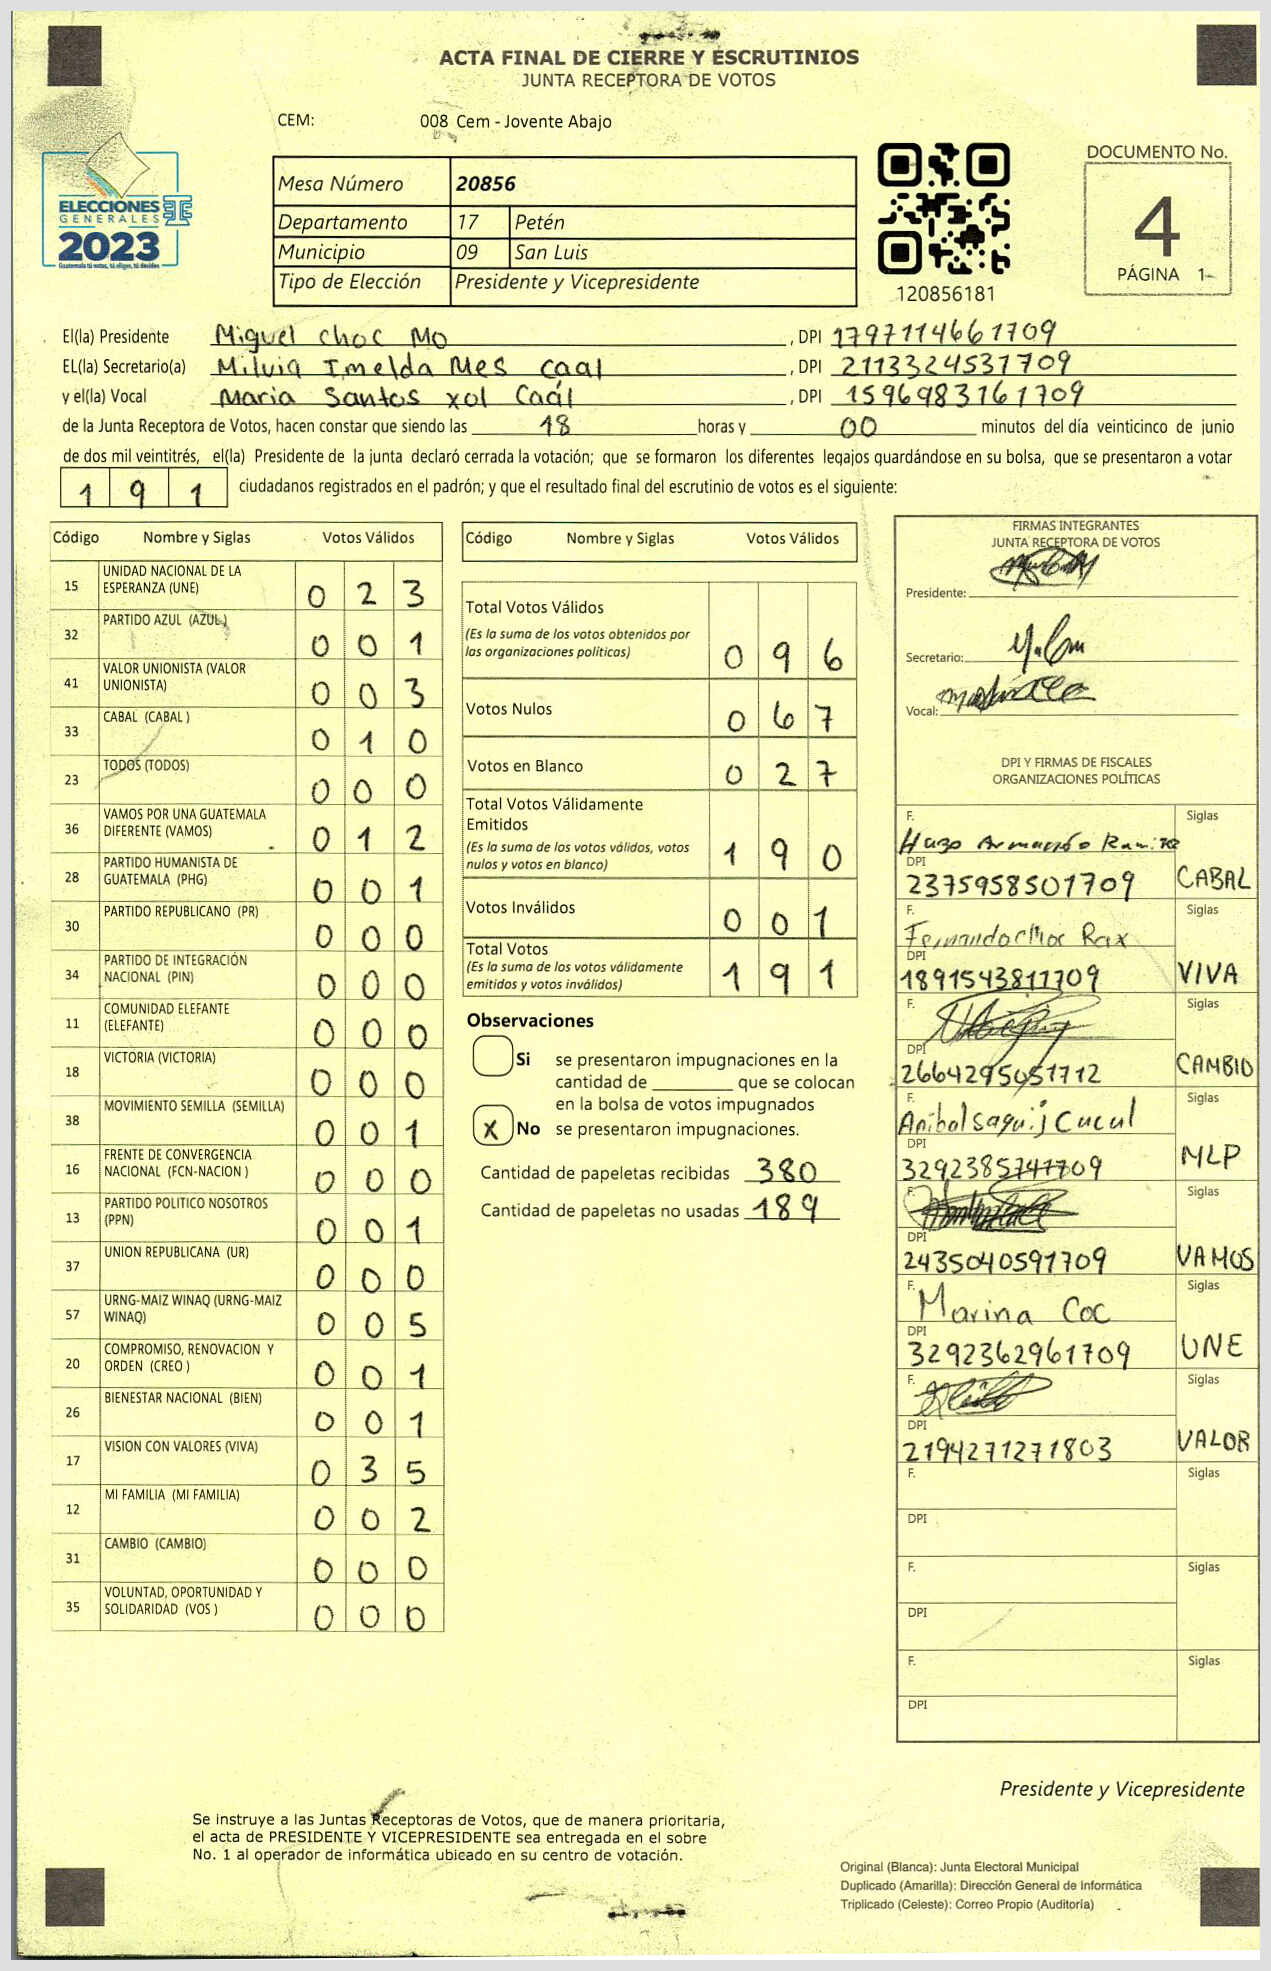 ACTA FINAL DE CIERRE Y ESCRUTINIOS
JUNTA RECEPTORA DE VOTOS
CEM: 008 Cem - Jovente Abajo
ELECCIONES
GENERALES
2023
Guatemala tú votas, tú eliges, tú decides
Mesa Número 20856
Departamento 17 Petén
Municipio 09 San Luis
Tipo de Elección Presidente y Vicepresidente
120856181
DOCUMENTO No.
4
PÁGINA 1
El(la) Presidente Miguel choc Mo , DPI 1797114661709
EL(la) Secretario(a) Milvia Imelda Mes caal , DPI 2113324531709
y el(la) Vocal Maria Santos xol Caál , DPI 1596983161709
de la Junta Receptora de Votos, hacen constar que siendo las 18 horas y 00 minutos del día veinticinco de junio
de dos mil veintitrés, el(la) Presidente de la junta declaró cerrada la votación; que se formaron los diferentes legajos guardándose en su bolsa, que se presentaron a votar
191 ciudadanos registrados en el padrón; y que el resultado final del escrutinio de votos es el siguiente:
Código Nombre y Siglas Votos Válidos
15 UNIDAD NACIONAL DE LA
ESPERANZA (UNE) 0 2 3
32 PARTIDO AZUL (AZUL) 0 0 1
41 VALOR UNIONISTA (VALOR
UNIONISTA) 0 0 3
33 CABAL (CABAL ) 0 1 0
23 TODOS (TODOS) 0 0 0
36 VAMOS POR UNA GUATEMALA
DIFERENTE (VAMOS) 0 1 2
28 PARTIDO HUMANISTA DE
GUATEMALA (PHG) 0 0 1
30 PARTIDO REPUBLICANO (PR) 0 0 0
34 PARTIDO DE INTEGRACIÓN
NACIONAL (PIN) 0 0 0
11 COMUNIDAD ELEFANTE
(ELEFANTE) 0 0 0
18 VICTORIA (VICTORIA) 0 0 0
38 MOVIMIENTO SEMILLA (SEMILLA) 0 0 1
16 FRENTE DE CONVERGENCIA
NACIONAL (FCN-NACION ) 0 0 0
13 PARTIDO POLITICO NOSOTROS
(PPN) 0 0 1
37 UNION REPUBLICANA (UR) 0 0 0
57 URNG-MAIZ WINAQ (URNG-MAIZ
WINAQ) 0 0 5
20 COMPROMISO, RENOVACION Y
ORDEN (CREO ) 0 0 1
26 BIENESTAR NACIONAL (BIEN) 0 0 1
17 VISION CON VALORES (VIVA) 0 3 5
12 MI FAMILIA (MI FAMILIA) 0 0 2
31 CAMBIO (CAMBIO) 0 0 0
35 VOLUNTAD, OPORTUNIDAD Y
SOLIDARIDAD (VOS ) 0 0 0
Código Nombre y Siglas Votos Válidos
Total Votos Válidos
(Es la suma de los votos obtenidos por
las organizaciones políticas) 0 9 6
Votos Nulos 0 6 7
Votos en Blanco 0 2 7
Total Votos Válidamente
Emitidos
(Es la suma de los votos válidos, votos
nulos y votos en blanco) 1 9 0
Votos Inválidos 0 0 1
Total Votos
(Es la suma de los votos válidamente
emitidos y votos inválidos) 1 9 1
Observaciones
Si se presentaron impugnaciones en la
cantidad de ________ que se colocan
en la bolsa de votos impugnados
X No se presentaron impugnaciones.
Cantidad de papeletas recibidas 380
Cantidad de papeletas no usadas 189
FIRMAS INTEGRANTES
JUNTA RECEPTORA DE VOTOS
Presidente:
Secretario:
Vocal:
DPI Y FIRMAS DE FISCALES
ORGANIZACIONES POLÍTICAS
F. Hugo Armando Ramirez Siglas
DPI
2375958501709 CABAL
F. Fernando choc Rax Siglas
DPI
1891543811709 VIVA
F. Siglas
DPI
2664295051712 CAMBIO
F. Anibal saquij Cucul Siglas
DPI
3292385741709 MLP
F. Siglas
DPI
2435040591709 VAMOS
F. Marina Coc Siglas
DPI
3292362961709 UNE
F. Siglas
DPI
2194271271803 VALOR
F. Siglas
DPI
F. Siglas
DPI
F. Siglas
DPI
Presidente y Vicepresidente
Se instruye a las Juntas Receptoras de Votos, que de manera prioritaria,
el acta de PRESIDENTE Y VICEPRESIDENTE sea entregada en el sobre
No. 1 al operador de informática ubicado en su centro de votación.
Original (Blanca): Junta Electoral Municipal
Duplicado (Amarilla): Dirección General de Informática
Triplicado (Celeste): Correo Propio (Auditoría)